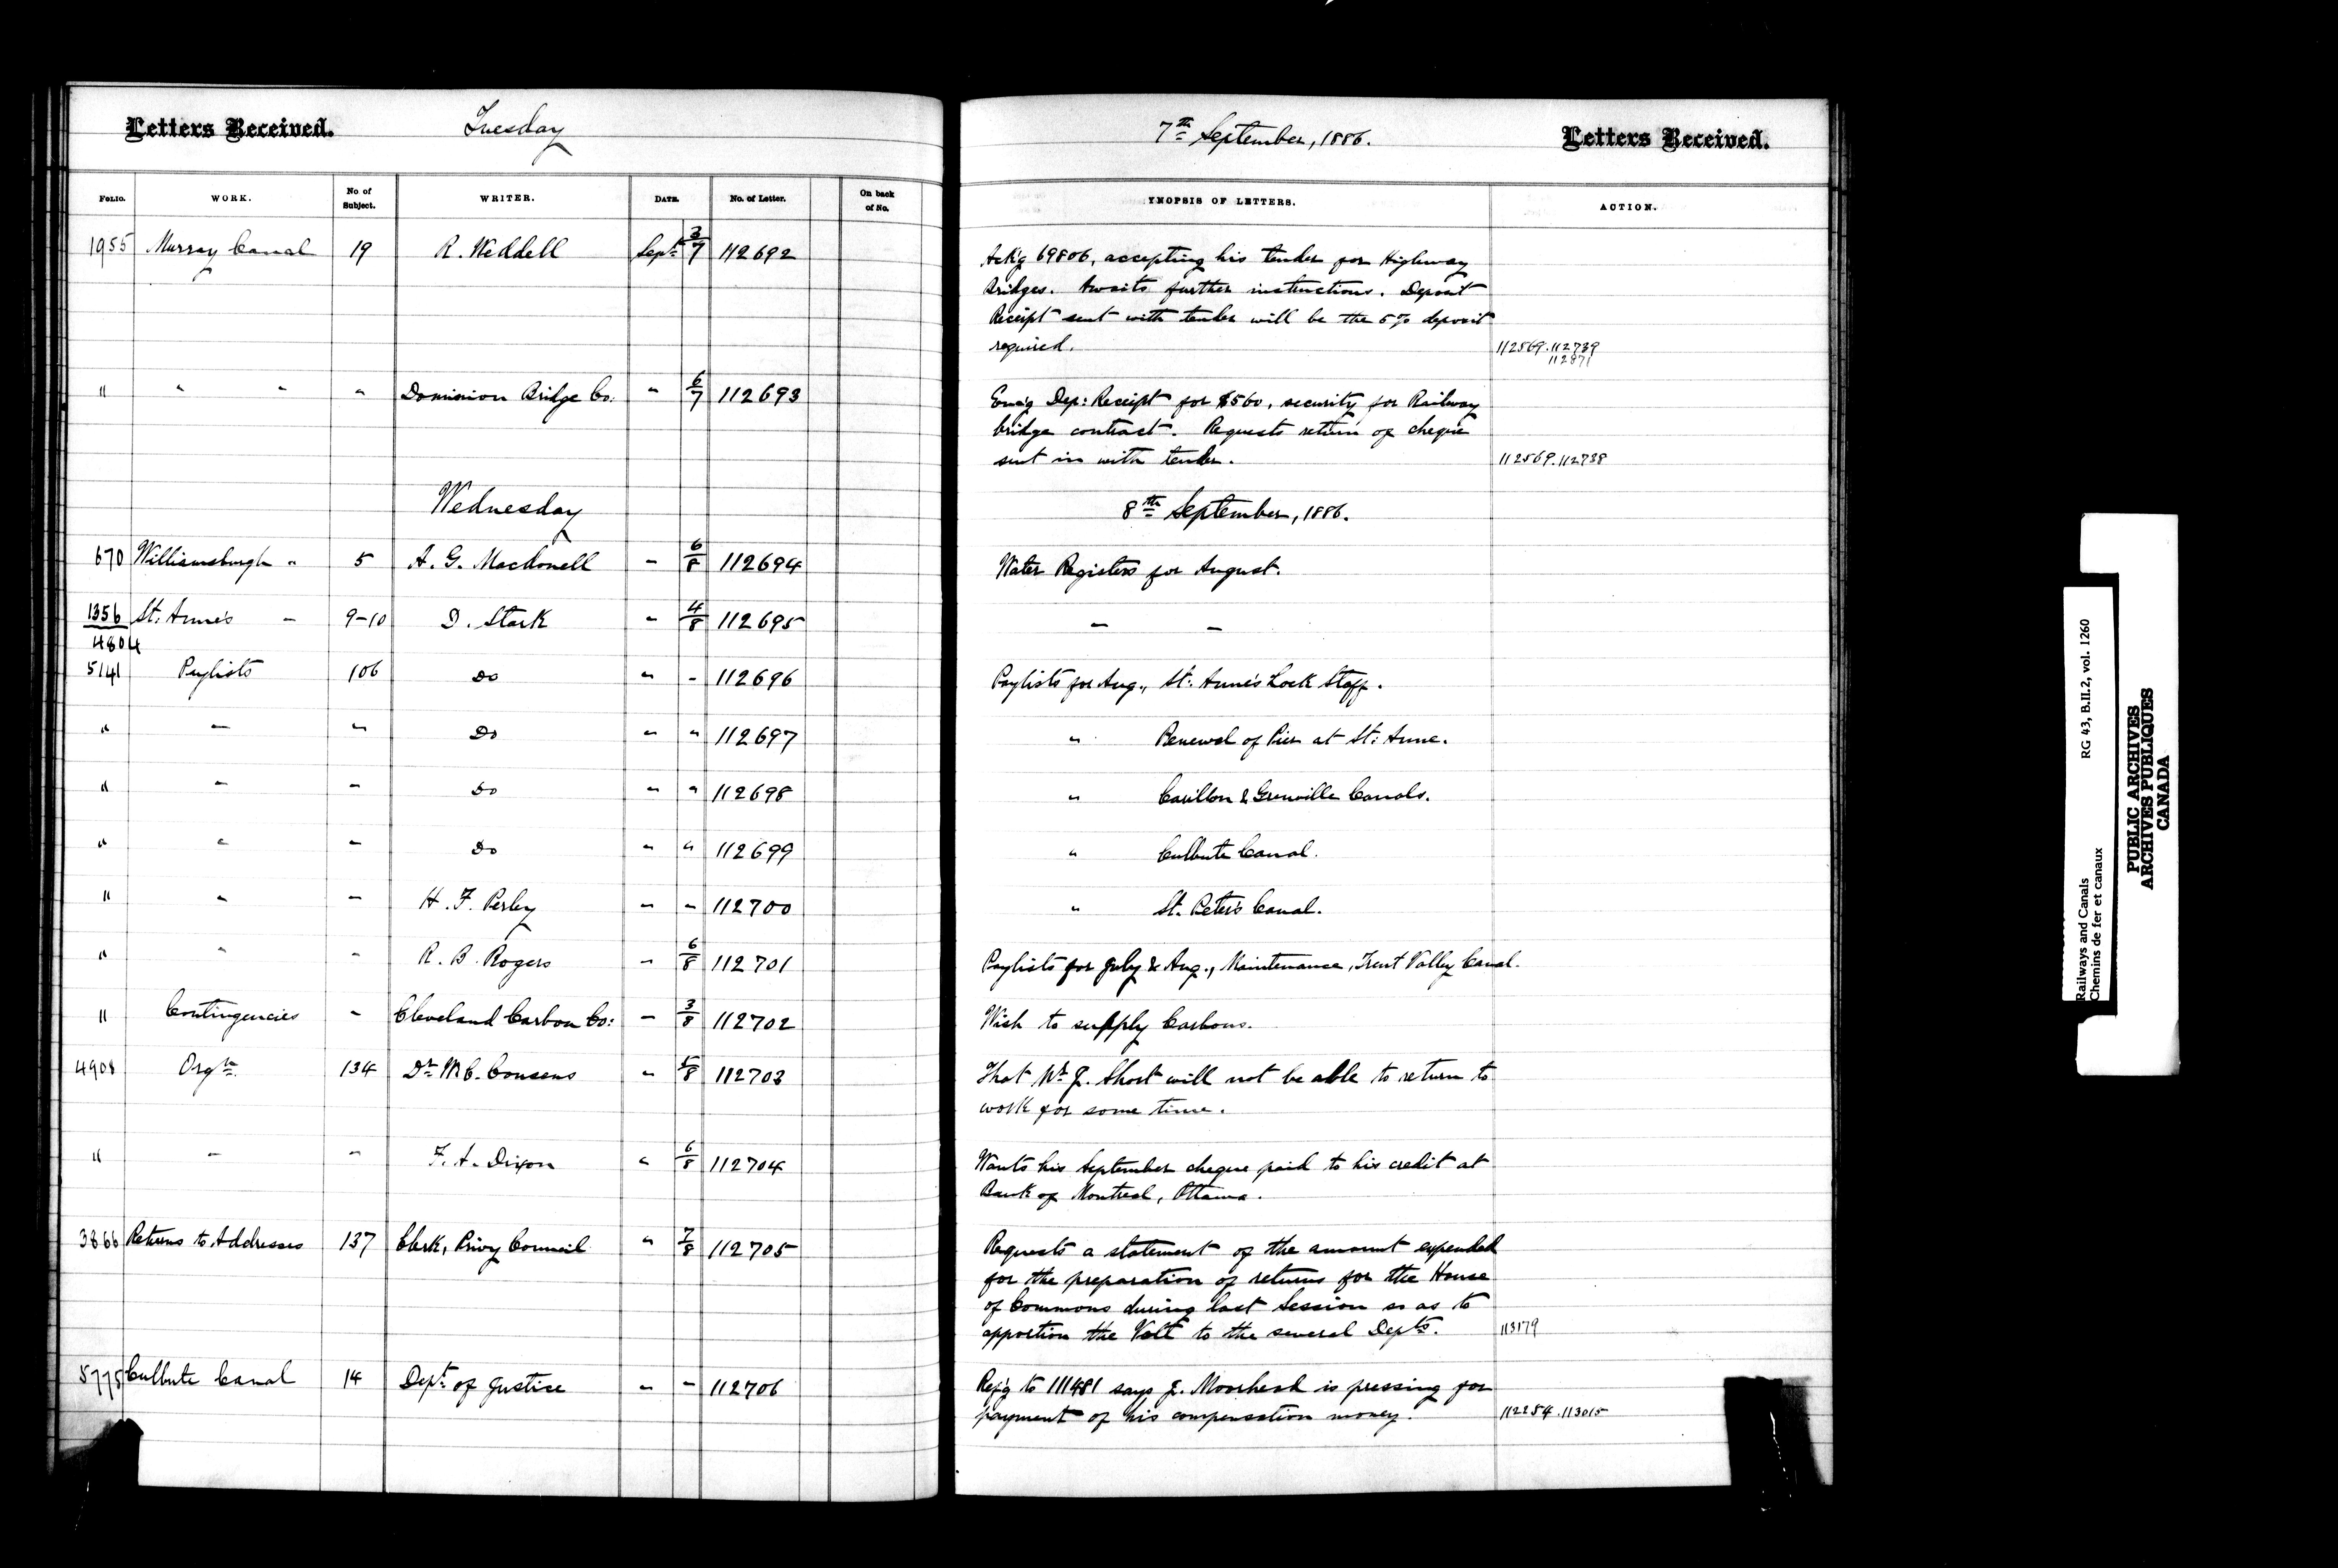 Letters Received. Tuesday 7th September, 1886. Letters Received.
FOLIO. WORK. No of Subject. WRITER. DATE. No. of Letter. On back of No. YNOPSIS OF LETTERS. ACTION.
1955 Murray Canal 19 R. Weddell Sept 3/7 112692 Ack'g 69806, accepting his tender for Highway
Bridges. Awaits further instructions. Deposit
Receipt sent with tender will be the 5% deposit
required. 112569.112739
112871
" " " " Dominion Bridge Co: " 6/7 112693 Enc'g Dep: Receipt for $560, security for Railway
bridge contract. Requests return of cheque
sent in with tender. 112569.112738
Wednesday 8th September, 1886.
670 Williamsburgh " 5 A. G. Macdonell " 6/8 112694 Water Registers for August.
1356 St: Anne's " 9-10 D. Stark " 4/8 112695 " "
4804
5141 Paylists 106 Do " " 112696 Paylists for Aug., St: Anne's Lock Staff.
" " " Do " " 112697 " Renewal of Pier at St: Anne.
" " " Do " " 112698 " Carillon & Grenville Canals.
" " " Do " " 112699 " Culbute Canal.
" " " H. F. Perley " " 112700 " St. Peter's Canal.
" " " R. B. Rogers " 6/8 112701 Paylists for July & Aug., Maintenance, Trent Valley Canal.
" Contingencies " Cleveland Carbon Co: " 3/8 112702 Wish to supply Carbons.
4908 Orgn. 134 Dr. Cousens " 5/8 112703 That J. Short will not be able to return to
work for some time.
" " " F. A. Dixon " 6/8 112704 Wants his September cheque paid to his credit at
Bank of Montreal, Ottawa.
3866 Returns to Addresses 137 Clerk, Privy Council " 7/8 112705 Requests a statement of the amount expended
for the preparation of returns for the House
of Commons during last Session so as to
apportion the Vote to the several Depts. 113179
5775 Culbute Canal 14 Dept of Justice " " 112706 Ref'g to 111481 says J. Moorhead is pressing for
payment of his compensation money. 112254.113015
Railways and Canals RG 43, B.II.2, vol. 1260
Chemins de fer et canaux
PUBLIC ARCHIVES
ARCHIVES PUBLIQUES
CANADA